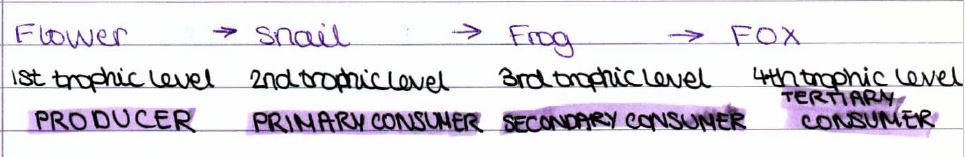 Flower → Snail → Frog → FOX
1st trophic level 2nd trophic level 3rd trophic level 4th trophic level
PRODUCER PRIMARY CONSUMER SECONDARY CONSUMER TERTIARY CONSUMER